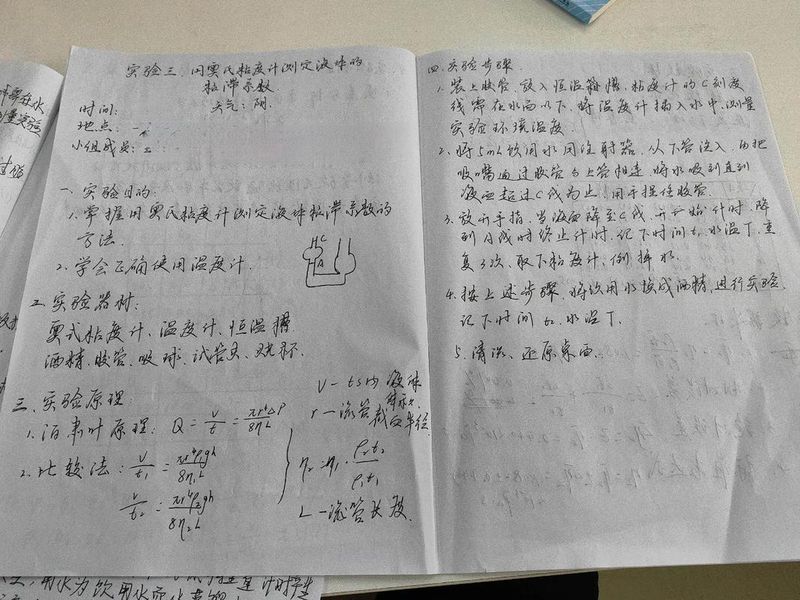 实验三、用奥氏粘度计测定液体的
粘滞系数
时间:
天气: 阴.
地点:
小组成员:
一. 实验目的:
1. 掌握用奥氏粘度计测定液体粘滞系数的
方法.
2. 学会正确使用温度计.
C
A
二. 实验器材:
奥式粘度计、温度计、恒温槽
酒精、胶管、吸球、试管夹、烧杯.
三. 实验原理
1. 泊肃叶原理: Q = V/t = πr⁴ΔP/8ηL
V — ts内液体体积
r — 流管截面半径
2. 比较法: V/t₁ = πr⁴ρ₁gh/8η₁L
V/t₂ = πr⁴ρ₂gh/8η₂L
η₂ = η₁ · ρ₂t₂/ρ₁t₁
L — 流管长度.
四. 实验步骤.
1. 装上胶管, 放入恒温箱槽, 粘度计的C刻度
线需在水面以下, 将温度计插入水中, 测量
实验环境温度.
2. 将5mL饮用水用注射器, 从下管注入, 再把
吸嘴通过胶管与上管相连, 将水吸到直到
液面超过C线为止, 用手捏住胶管.
3. 放开手指, 当液面降至C线, 开始计时, 降
到A线时终止计时, 记下时间t₁, 水温T, 重
复3次、取下粘度计, 倒掉水.
4. 按上述步骤, 将饮用水换成酒精, 进行实验,
记下时间t₂, 水温T.
5. 清洗、还原桌面.
用水为饮用水